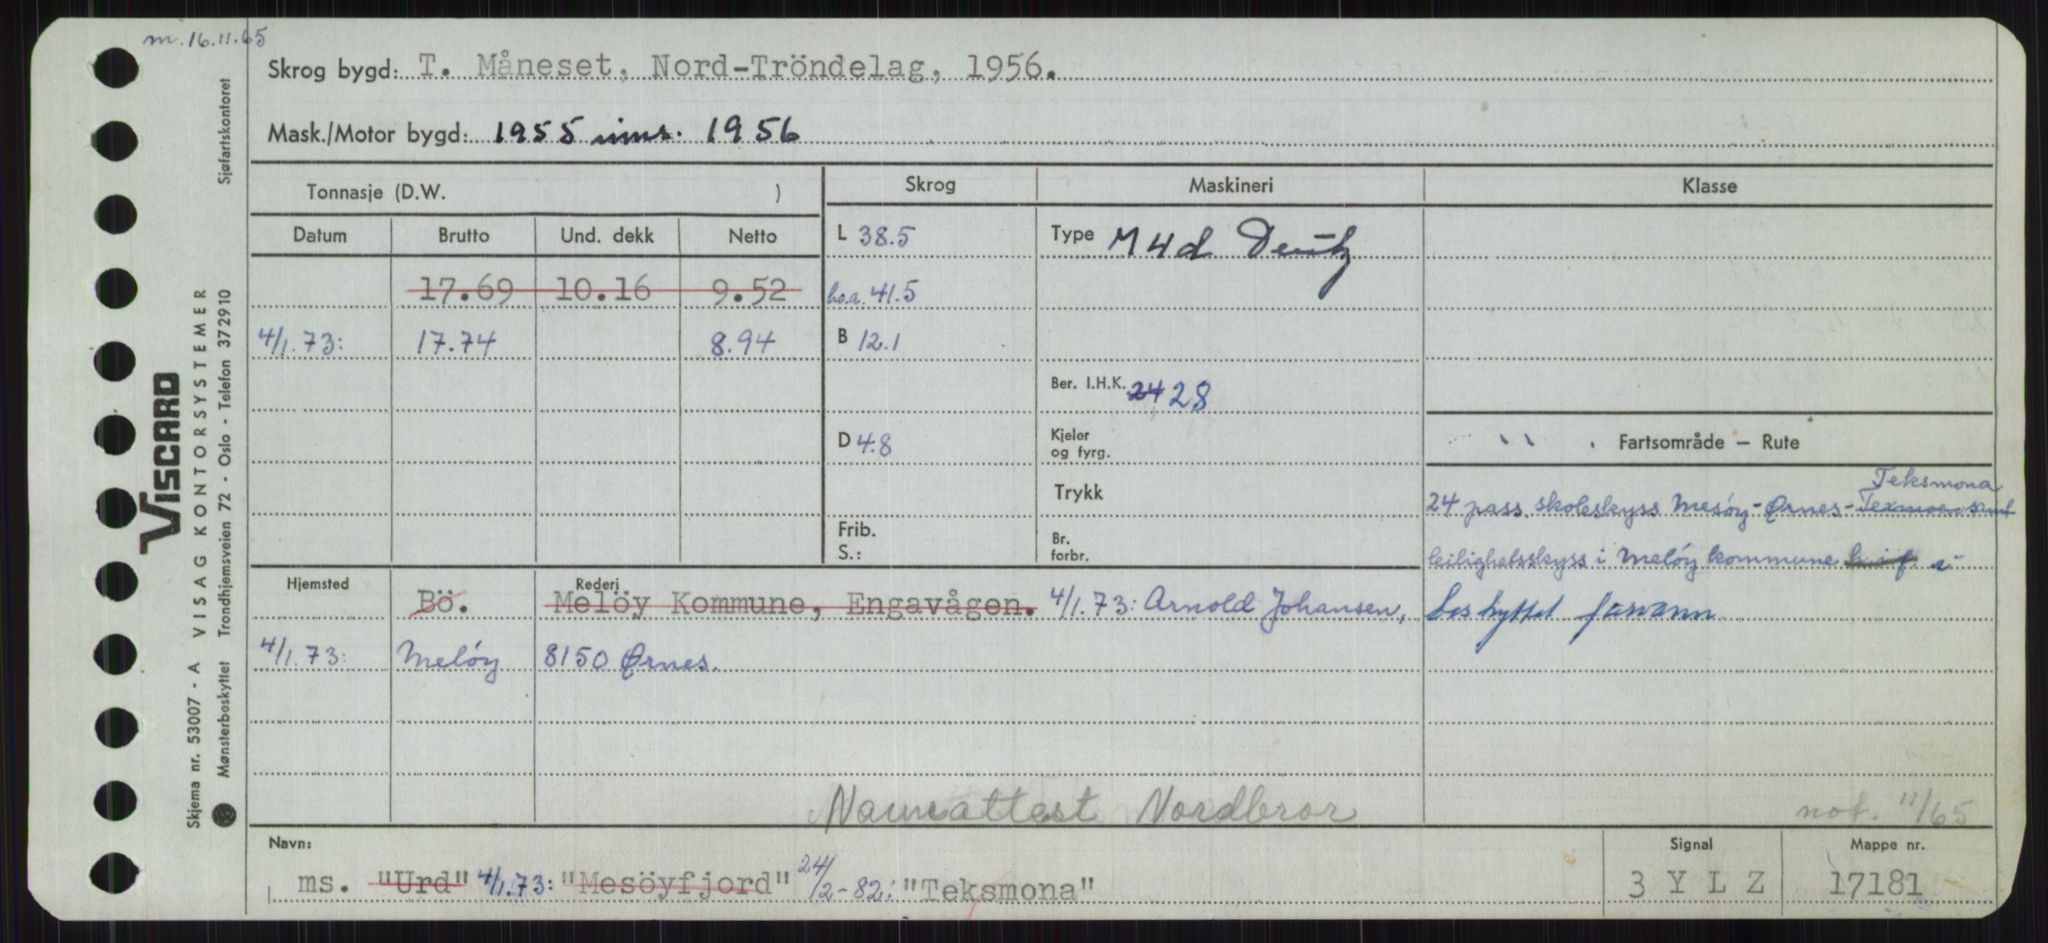 m. 16.11.65
Skrog bygd: T. Måneset, Nord-Tröndelag, 1956.
Mask./Motor bygd: 1955 inns. 1956
Tonnasje (D.W. )
Skrog
Maskineri
Klasse
Datum Brutto Und. dekk Netto
L 38.5
Type M4d Deutz
17.69 10.16 9.52
l.o.a. 41.5
4/1.73: 17.74 8.94
B 12.1
Ber. I.H.K. 24 28
D 4.8
Kjeler og fyrg.
Fartsområde – Rute
Trykk
Teksmona
24 pass. skoleskyss Mesöy-Ørnes-Texmoen samt
Frib. S.:
Br. forbr.
leilighetsskyss i Melöy kommune i
beskyttet farvann
Hjemsted
Rederi
Bö. Melöy Kommune, Engavågen. 4/1.73: Arnold Johansen,
4/1.73: Melöy 8150 Ørnes.
Navneattest Nordbror
not. 11/65
Navn:
ms. "Urd" 4/1.73: "Mesöyfjord" 24/2-82: "Teksmona"
Signal
3 Y L Z
Mappe nr.
17181
Skjema nr. 53007 - A VISAG KONTORSYSTEMER
Mønsterbeskyttet Trondhjemsveien 72 - Oslo - Telefon 372910
Sjøfartskontoret
VISCARD